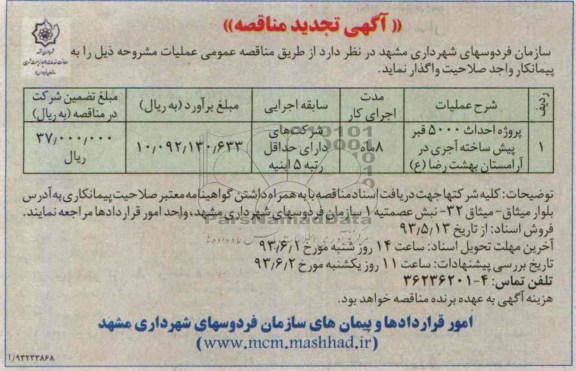 « آگهی تجدید مناقصه»
سازمان فردوسهای شهرداری مشهد در نظر دارد از طریق مناقصه عمومی عملیات مشروحه ذیل را به
پیمانکار واجد صلاحیت واگذار نماید.
ردیف
شرح عملیات
مدت اجرای کار
سابقه اجرایی
مبلغ برآورد (به ریال)
مبلغ تضمین شرکت در مناقصه (به ریال)
۱
پروژه احداث ۵۰۰۰ قبر پیش ساخته آجری در آرامستان بهشت رضا (ع)
۸ماه
شرکت‌های دارای حداقل رتبه ۵ ابنیه
۱۰/۰۹۲/۱۳۰/۶۳۳
۳۷/۰۰۰/۰۰۰ ریال
توضیحات: کلیه شرکتها جهت دریافت اسناد مناقصه با به همراه داشتن گواهینامه معتبر صلاحیت پیمانکاری به آدرس
بلوار میثاق- میثاق ۳۲- نبش عصمتیه ۱ سازمان فردوسهای شهرداری مشهد، واحد امور قراردادها مراجعه نمایند.
فروش اسناد: از تاریخ ۹۳/۵/۱۳
ParsNamadData
آخرین مهلت تحویل اسناد: ساعت ۱۴ روز شنبه مورخ ۹۳/۶/۱
تاریخ بررسی پیشنهادات: ساعت ۱۱ روز یکشنبه مورخ ۹۳/۶/۲
تلفن تماس: ۴-۳۶۲۳۶۲۰۱
هزینه آگهی به عهده برنده مناقصه خواهد بود.
امور قراردادها و پیمان های سازمان فردوسهای شهرداری مشهد
(www.mcm.mashhad.ir)
۱/۹۳۲۳۳۸۶۸